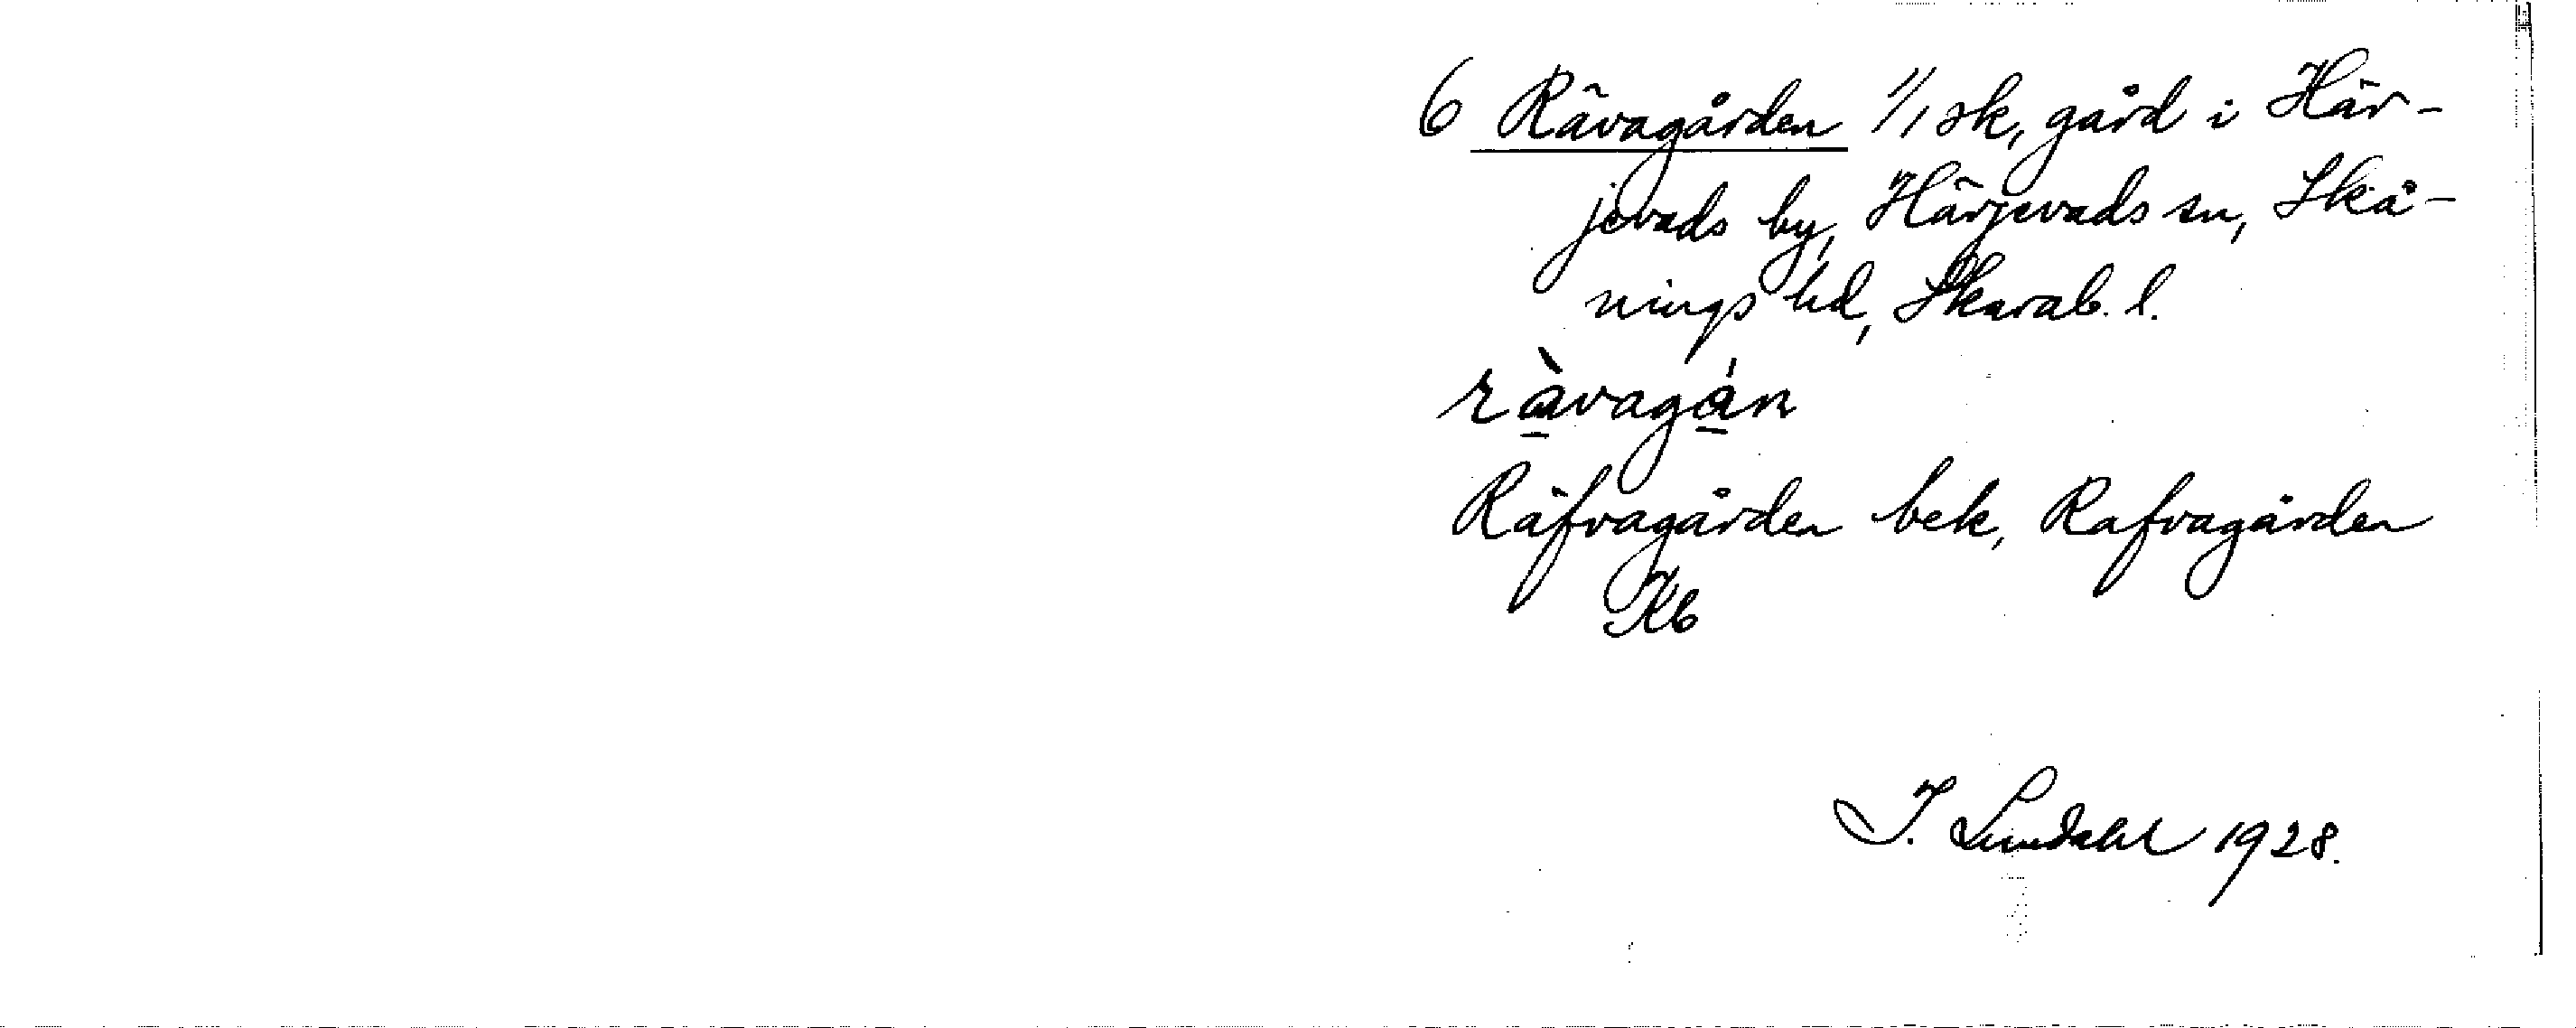 6 Rävagården 1/1 sk, gård i Här-
jevads by, Härjevads sn, Skå-
nings hd, Skarab. l.
ràvagán
Räfvagården bek, Rafvagården
Kb
I. Lundahl 1928.